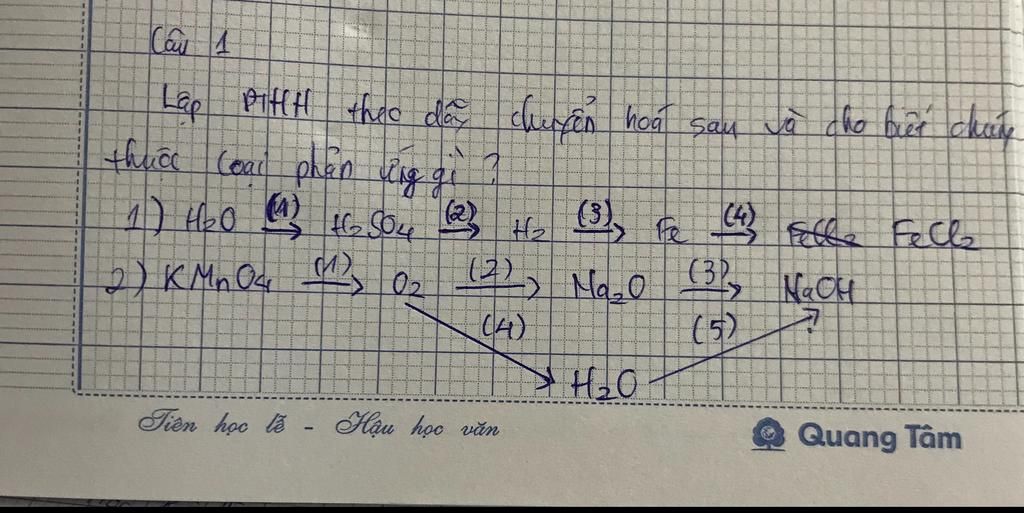 Câu 1
Lập PTHH theo dãy chuyển hoá sau và cho biết chúng
thuộc loại phản ứng gì ?
1) H2O (1) → H2SO4 (2) → H2 (3) → Fe (4) → FeCl2 FeCl2
2) KMnO4 (1) → O2 (2) → Na2O (3) → NaOH
(4) (5)
H2O
Tiên học lễ - Hậu học văn
Quang Tâm